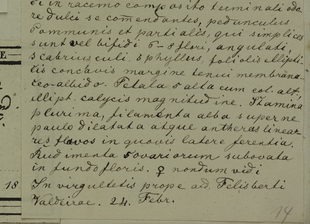 di in racemo composito terminali odo-
re dulci se comendantes, pedunculus
communis et partialis, qui simplices
sunt vel bifidi 5-8 flori, angulati,
scabriusculi. 5 phyllus, foliolis ellipti-
tis concavis margine tenui membrana-
ceo-albido. Petala 5 alta cum cal. alt.
ellipt. calycis magnitudine. Stamina
plurima, filamenta alba superne
paulo dilatata atque antheras linear
res flavos in quovis latere ferentia.
Rudimenta 5 ovariorum subovata
in fundo floris. ♀ nondum vidi
In virgultetis prope ad. Felisberti
Valdirac. 24. Febr.
18
14